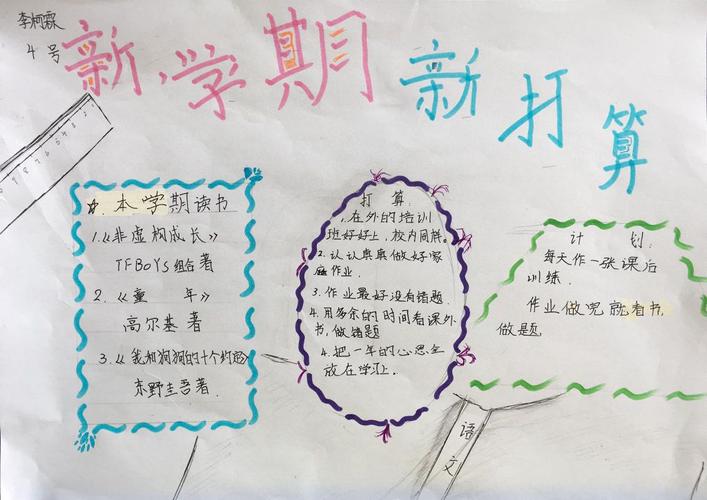 李柯霖
4号
新学期新打算
本学期读书
1.《非虚构成长》
TFBOYS组合著
2.《童 年》
高尔基著
3.《我和狗狗的十个约定》
东野圭吾著.
打 算:
1.在外的培训
班好好上,校内同样.
2.认认真真做好家
庭作业.
3.作业最好没有错题.
4.用多余的时间看课外
书,做错题
4.把一年的心思全
放在学习上.
计 划:
每天作一张课后
训练.
作业做完就看书,
做题.
语文